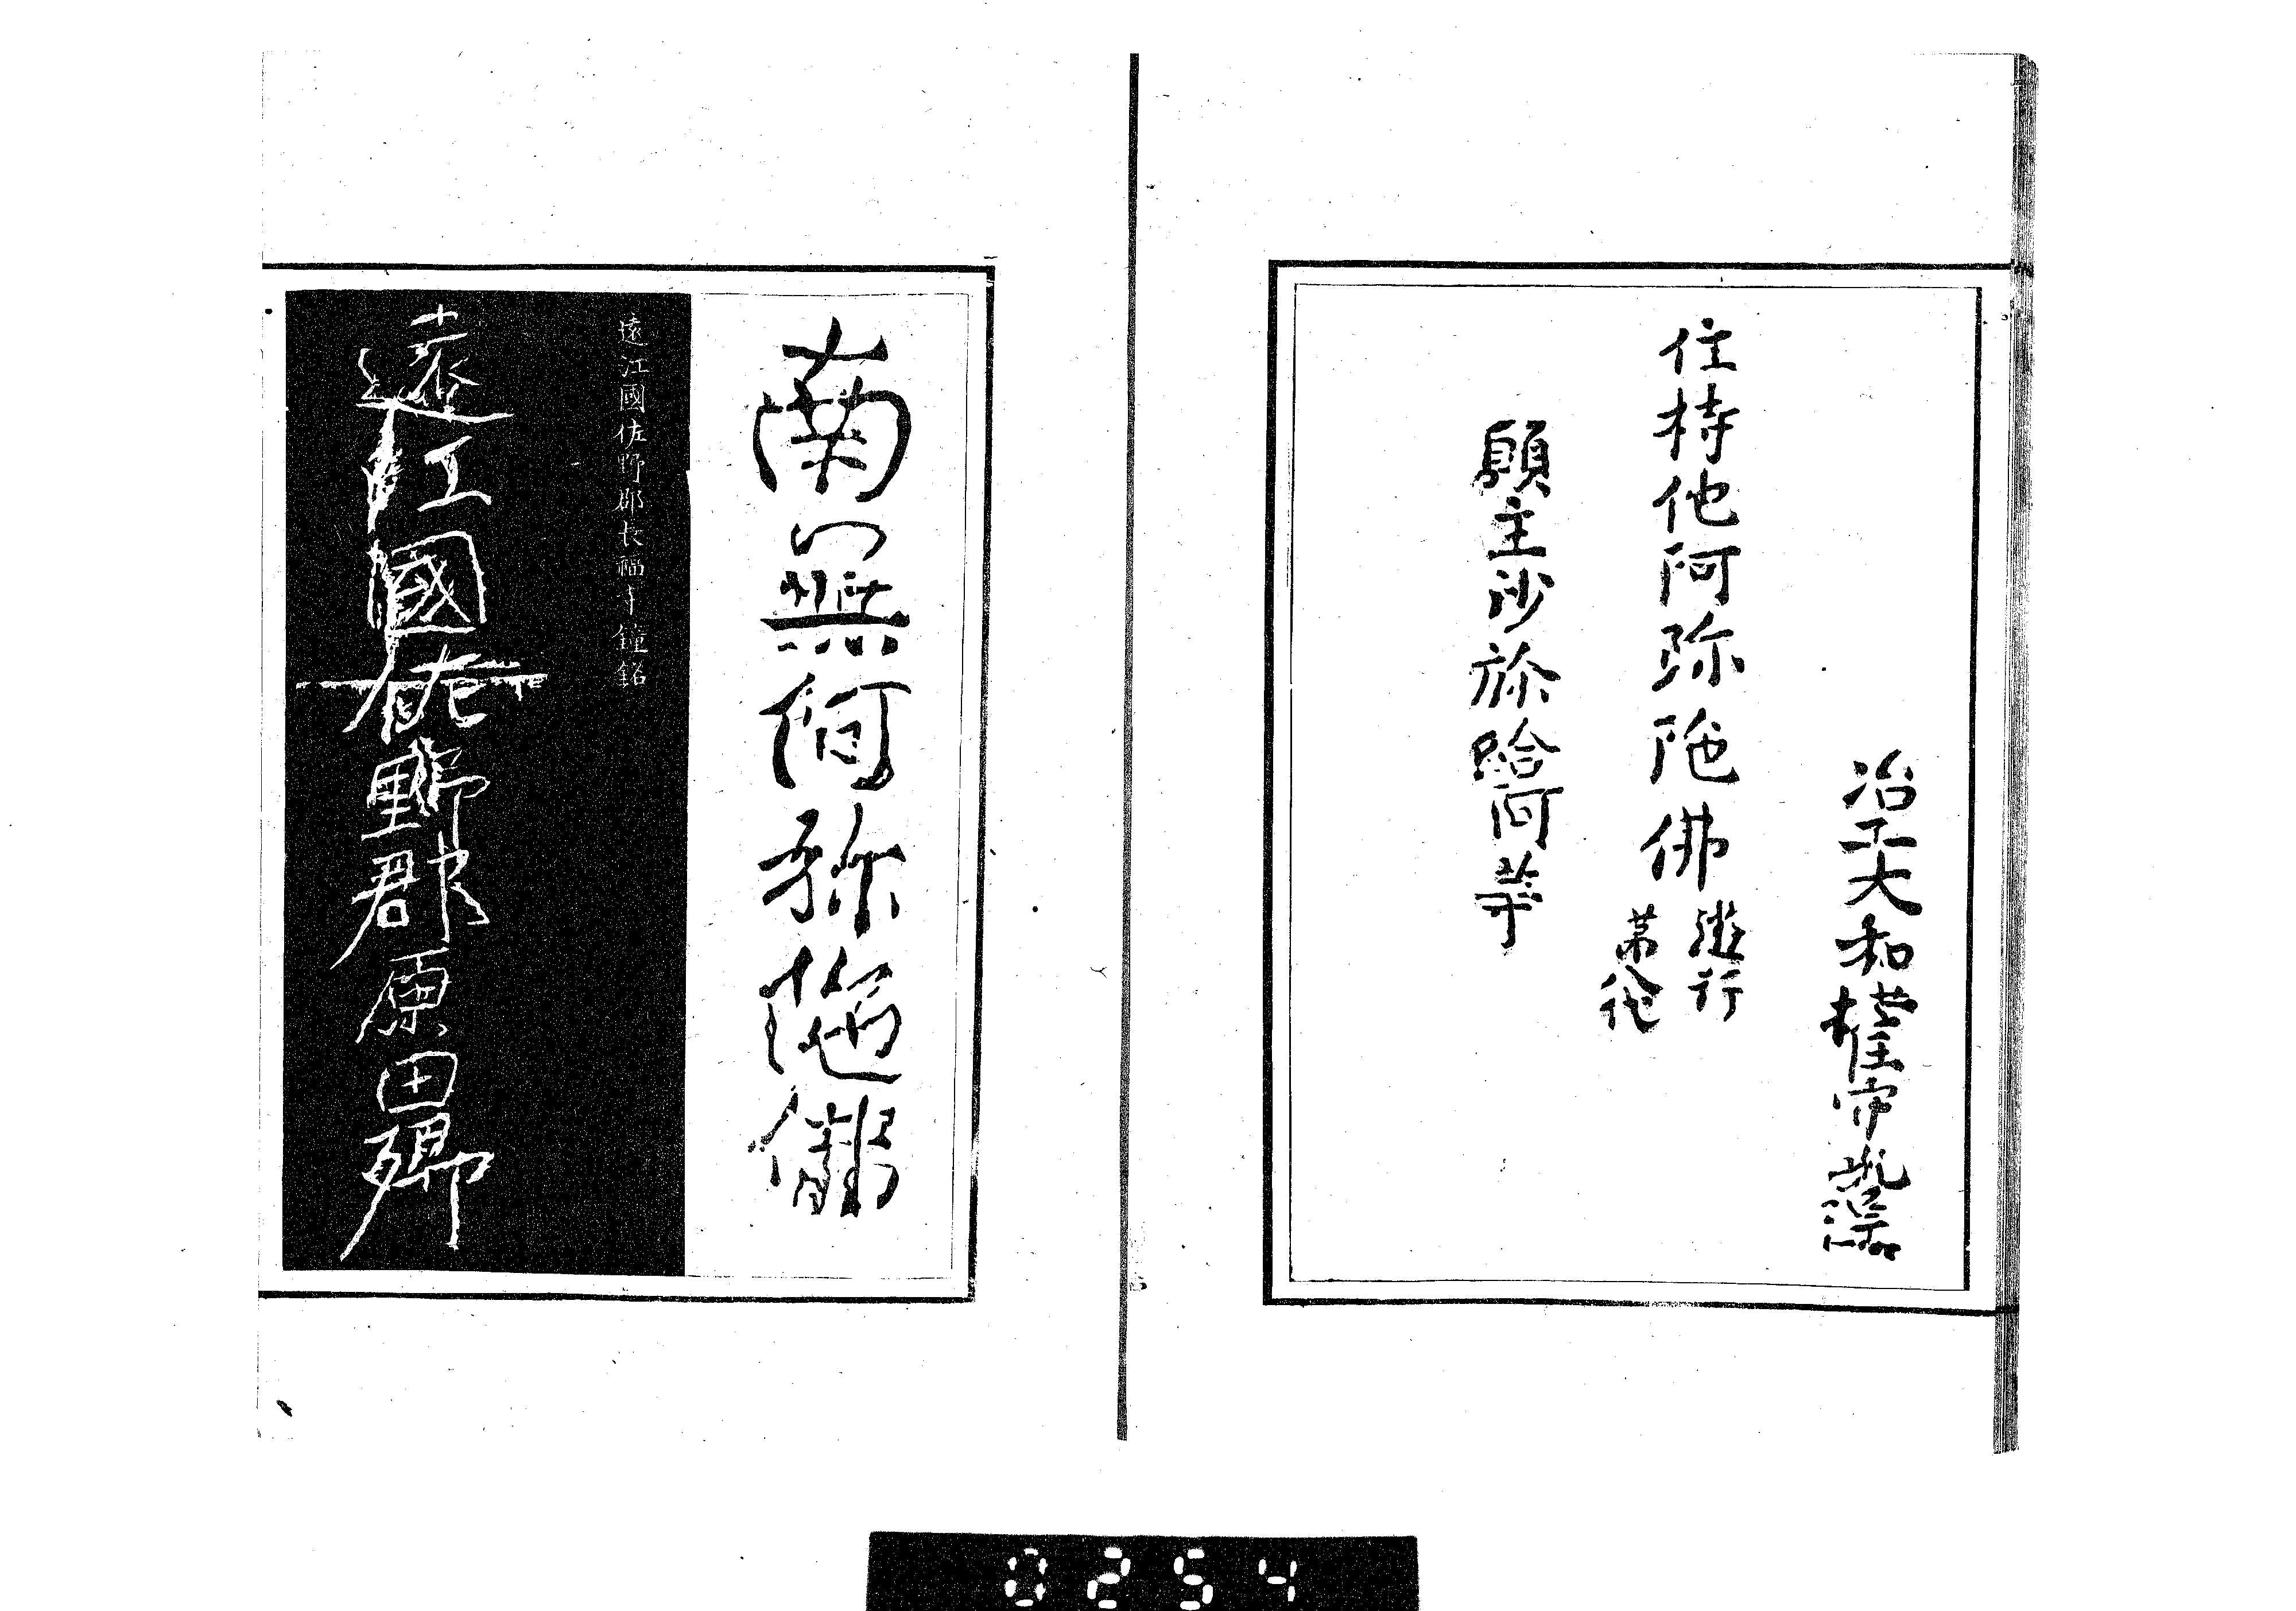 冶工大和權守
住持他阿弥陀佛
遊行
苐
願主沙弥阿等
南無阿弥陀佛
遠江國佐野郡長福寺鐘銘
遠江國佐野郡原田郷
0254